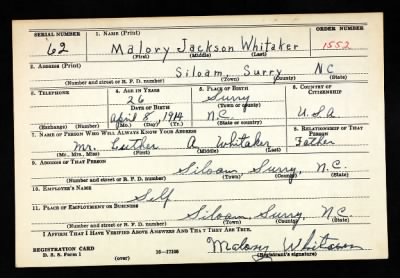 SERIAL NUMBER 1. NAME (Print) ORDER NUMBER
62 Malory Jackson Whitaker 1552
(First) (Middle) (Last)
2. ADDRESS (Print)
Siloam, Surry N C
(Number and street or R. F. D. number) (Town) (County) (State)
3. TELEPHONE 4. AGE IN YEARS 5. PLACE OF BIRTH 6. COUNTRY OF CITIZENSHIP
26 Surry
DATE OF BIRTH (Town or county)
April 8, 1914 N.C. U.S.A
(Exchange) (Number) (Mo.) (Day) (Yr.) (State or country)
7. NAME OF PERSON WHO WILL ALWAYS KNOW YOUR ADDRESS 8. RELATIONSHIP OF THAT PERSON
Mr. Luther A Whitaker Father
(Mr., Mrs., Miss) (First) (Middle) (Last)
9. ADDRESS OF THAT PERSON
Siloam, Surry, N.C.
(Number and street or R. F. D. number) (Town) (County) (State)
10. EMPLOYER'S NAME
Self
11. PLACE OF EMPLOYMENT OR BUSINESS
Siloam, Surry, N.C.
(Number and street or R. F. D. number) (Town) (County) (State)
I AFFIRM THAT I HAVE VERIFIED ABOVE ANSWERS AND THAT THEY ARE TRUE.
REGISTRATION CARD
D. S. S. Form 1 (over) Malory Whitaker
(Registrant's signature)